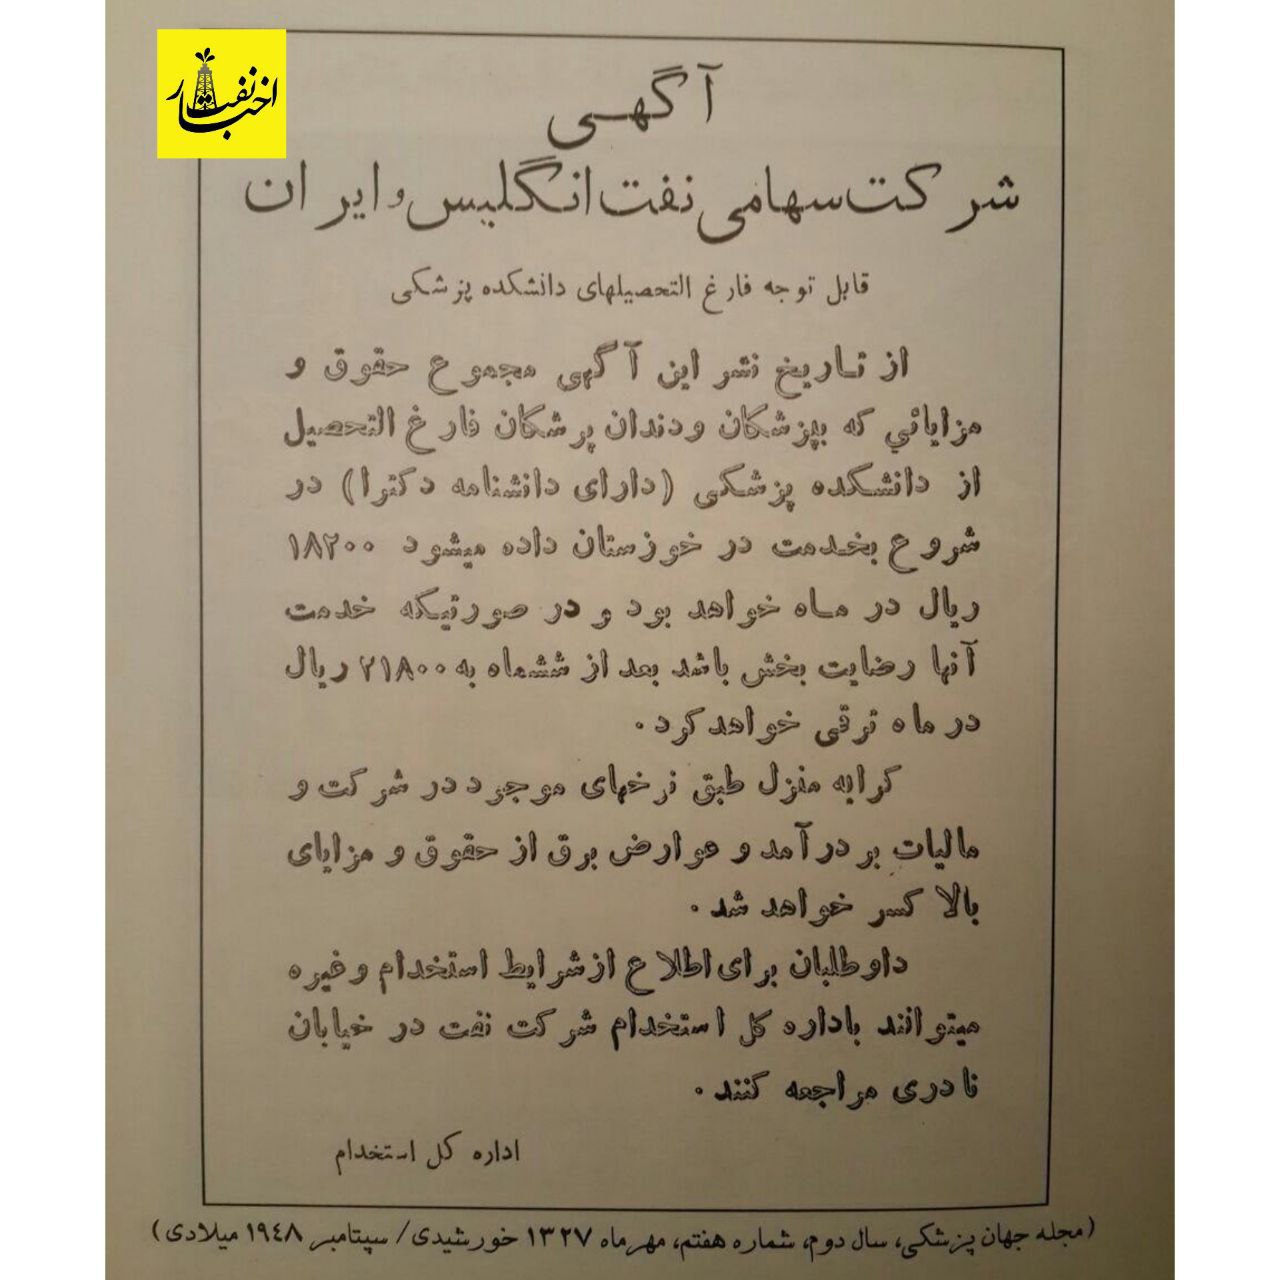 اخبار نفت
آگهی
شرکت سهامی نفت انگلیس و ایران
قابل توجه فارغ التحصیلهای دانشکده پزشکی
از تاریخ نشر این آگهی مجموع حقوق و
مزایائی که بپزشکان و دندان پرشکان فارغ التحصیل
از دانشکده پزشکی (دارای دانشنامه دکترا) در
شروع بخدمت در خوزستان داده میشود ۱۸۲۰۰
ریال در ماه خواهد بود و در صورتیکه خدمت
آنها رضایت بخش باشد بعد از ششماه به ۲۱۸۰۰ ریال
در ماه ترقی خواهد کرد .
کرایه منزل طبق نرخهای موجود در شرکت و
مالیات بر درآمد و عوارض برق از حقوق و مزایای
بالا کسر خواهد شد .
داوطلبان برای اطلاع از شرایط استخدام و غیره
میتوانند باداره کل استخدام شرکت نفت در خیابان
نادری مراجعه کنند .
اداره کل استخدام
(مجله جهان پزشکی، سال دوم، شماره هفتم، مهرماه ۱۳۲۷ خورشیدی/ سپتامبر ۱۹٤۸ میلادی)